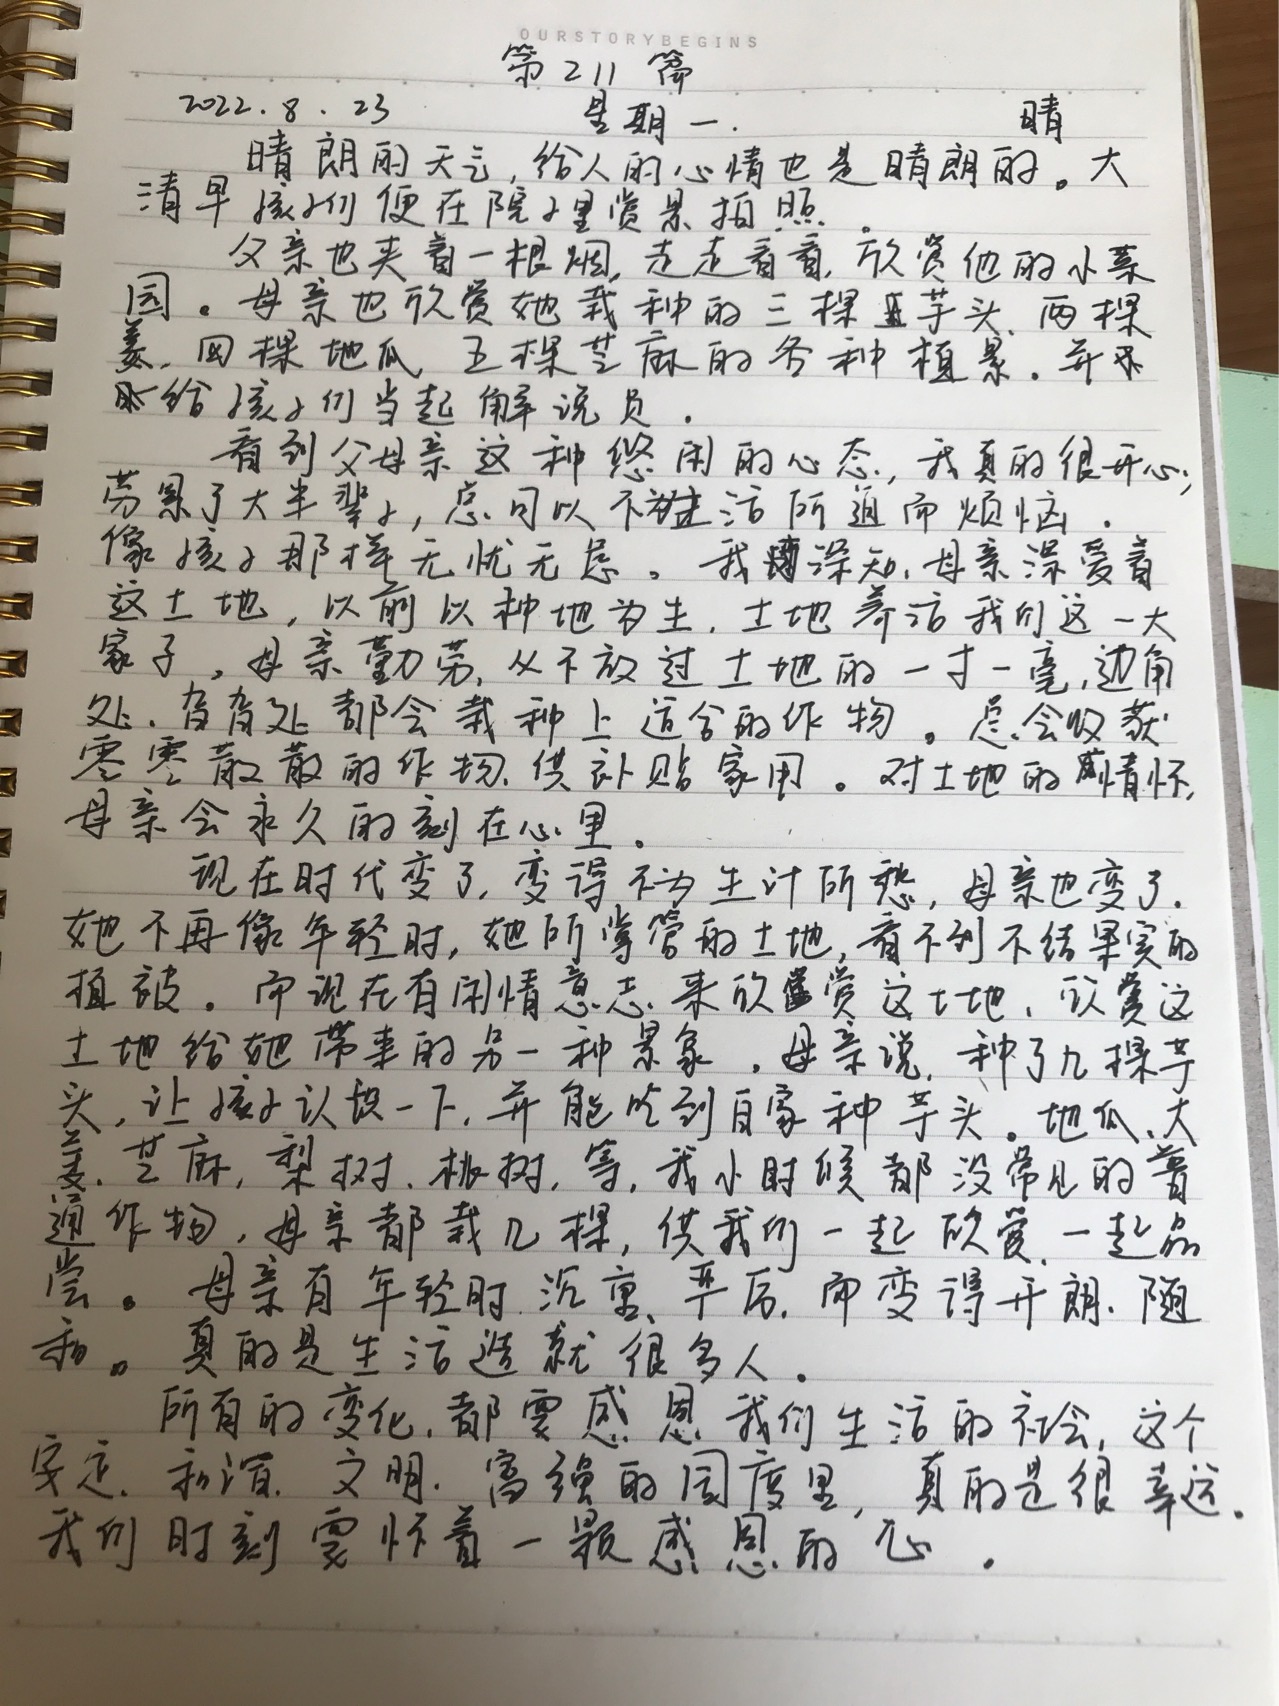 OURSTORYBEGINS
第211篇
2022.8.23 星期一. 晴
晴朗的天气,给人的心情也是晴朗的。大
清早孩子们便在院子里赏景拍照。
父亲也夹着一根烟,走走看看,欣赏他的小菜
园。母亲也欣赏她栽种的三棵芋头、两棵
姜、四棵地瓜、五棵芝麻的各种植景。并不
时给孩子们当起解说员.
看到父母亲这种悠闲的心态,我真的很开心,
劳累了大半辈子,总可以不被生活所迫而烦恼.
像孩子那样无忧无虑。我深知,母亲深爱着
这土地,以前以种地为生,土地养活我们这一大
家子。母亲勤劳,从不放过土地的一寸一毫,边角
处、旮旯处都会栽种上适合的作物。总会收获
零零散散的作物,供补贴家用。对土地的情怀,
母亲会永久的刻在心里。
现在时代变了,变得不为生计所愁,母亲也变了.
她不再像年轻时,她所掌管的土地,看不到不结果实的
植被。而现在有闲情意志来欣赏这土地,欣赏这
土地给她带来的另一种景象。母亲说,种了几棵芋
头,让孩子认识一下,并能吃到自家种芋头。地瓜、大
姜、芝麻,梨树、桃树,等,我小时候都没常见的普
通作物,母亲都栽几棵,供我们一起欣赏、一起品
尝。母亲有年轻时沉重、严厉,而变得开朗、随
和。真的是生活造就很多人.
所有的变化,都要感恩我们生活的社会,这个
安定、和谐、文明、富强的国度里,真的是很幸运.
我们时刻要怀着一颗感恩的心。